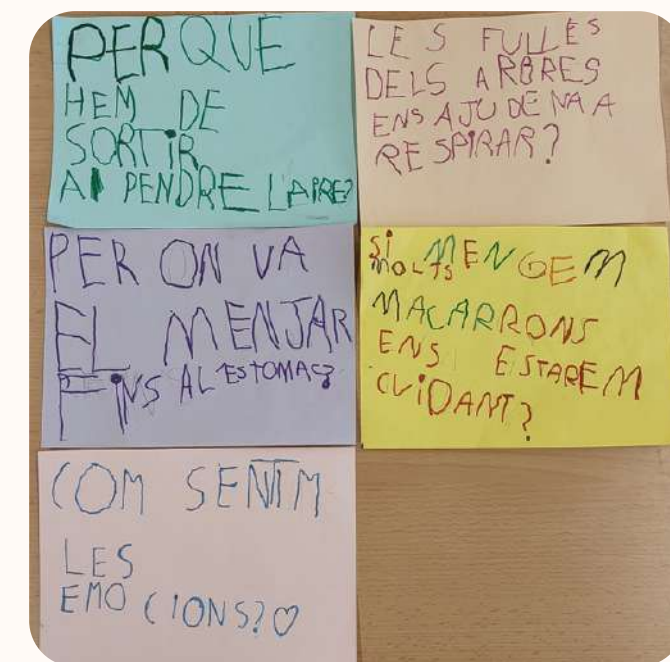 PER QUE
HEM DE
SORTIR
A PENDRE L'AIRE?
LES FULLES
DELS ARBRES
ENS AJUDEN A A
RESPIRAR?
PER ON VA
EL MENJAR
FINS AL ESTOMAC?
SI MENGEM
MOLTS
MACARRONS
ENS ESTAREM
CUIDANT?
COM SENTIM
LES
EMOCIONS?♡